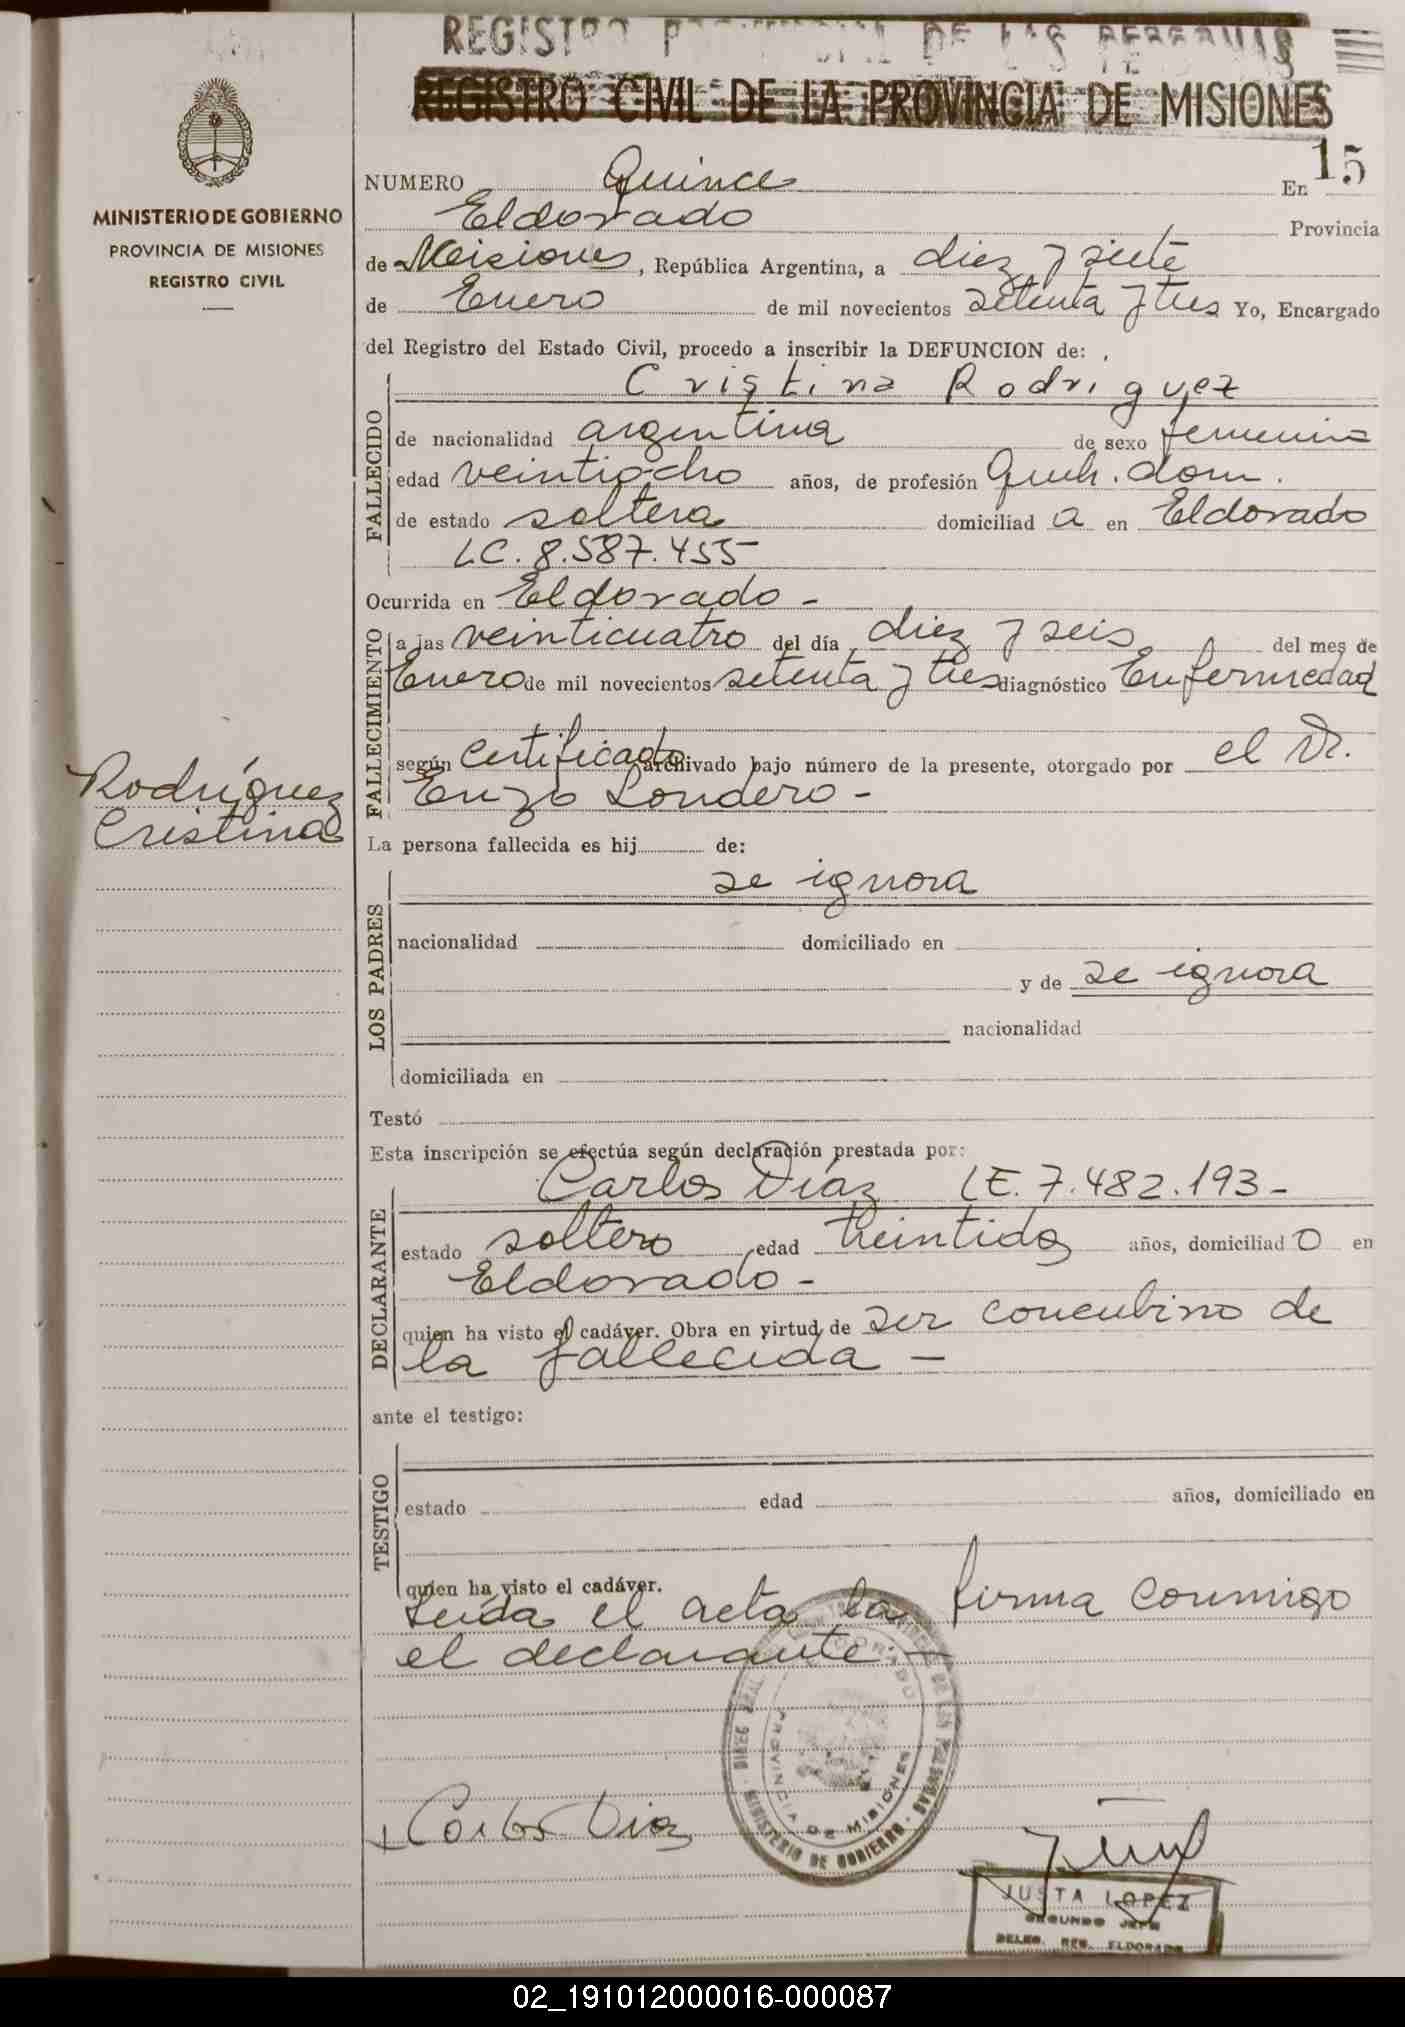 REGISTRO
REGISTRO CIVIL DE LA PROVINCIA DE MISIONES
MINISTERIO DE GOBIERNO
PROVINCIA DE MISIONES
REGISTRO CIVIL
15
NUMERO Quince En
Eldorado Provincia
de Misiones, República Argentina, a diez y siete
de Enero de mil novecientos setenta y tres Yo, Encargado
del Registro del Estado Civil, procedo a inscribir la DEFUNCION de:
Cristina Rodriguez
FALLECIDO
de nacionalidad argentina de sexo femenino
edad veintiocho años, de profesión Queh. dom.
de estado soltera domiciliad a en Eldorado
LC. 8.587.455
Ocurrida en Eldorado -
FALLECIMIENTO
a las veinticuatro del día diez y seis del mes de
Enero de mil novecientos setenta y tres diagnóstico Enfermedad
según Certificado archivado bajo número de la presente, otorgado por el Dr.
Enzo Londero -
Rodríguez
Cristina
La persona fallecida es hij de:
LOS PADRES
se ignora
nacionalidad domiciliado en
y de se ignora
nacionalidad
domiciliada en
Testó
Esta inscripción se efectúa según declaración prestada por:
DECLARANTE
Carlos Díaz LE. 7.482.193 -
estado soltero, edad treintidos años, domiciliad o en
Eldorado -
quien ha visto el cadáver. Obra en virtud de ser concubino de
la fallecida -
ante el testigo:
TESTIGO
estado edad años, domiciliado en
quien ha visto el cadáver.
Leída el acta la firma conmigo
el declarante. -
ELDORADO
PROVINCIA DE MISIONES
MINISTERIO DE GOBIERNO
Carlos Diaz
JUSTA LOPEZ
SEGUNDO JEFE
DELEG. REG. ELDORADO
02_191012000016-000087